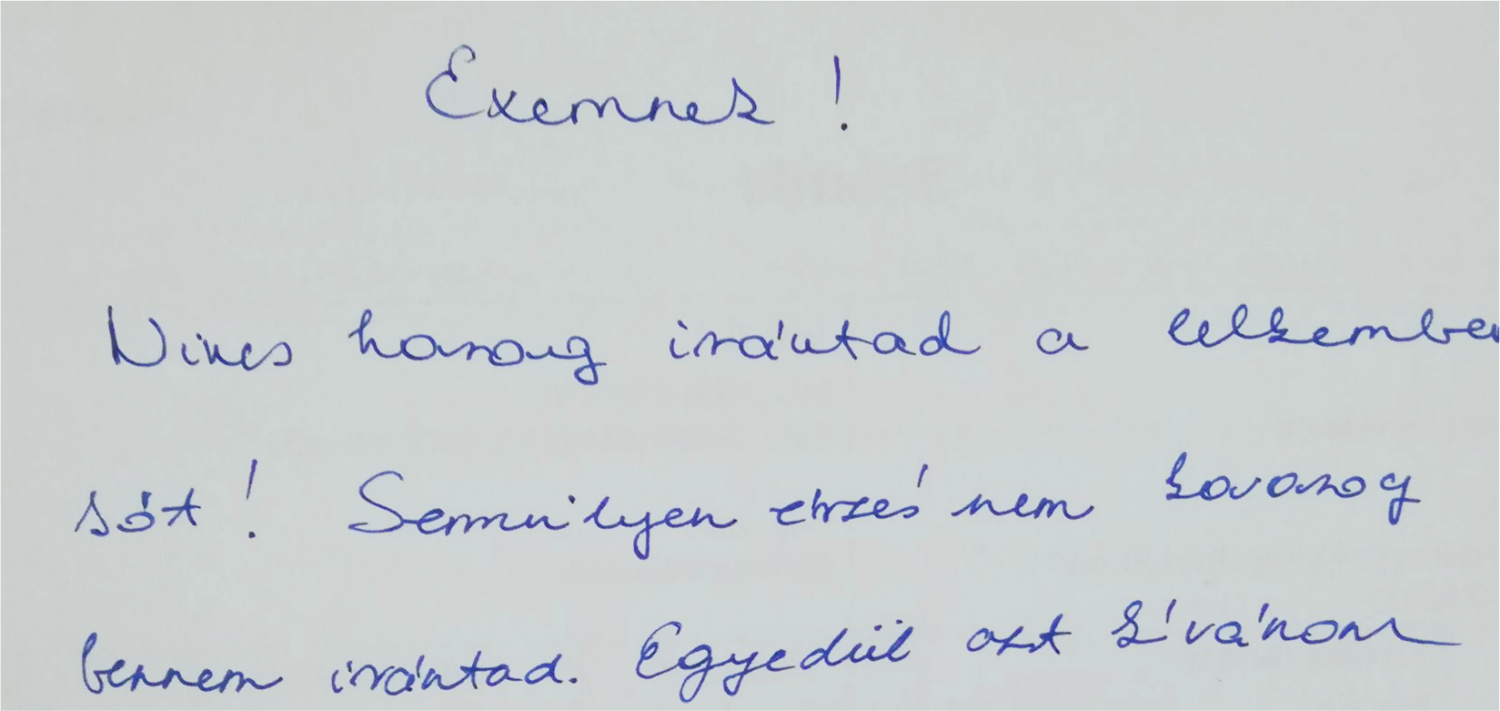 Exemnek!
Nincs harag irántad a lelkemben
sőt! Semmilyen érzés nem kavarog
bennem irántad. Egyedül azt kívánom